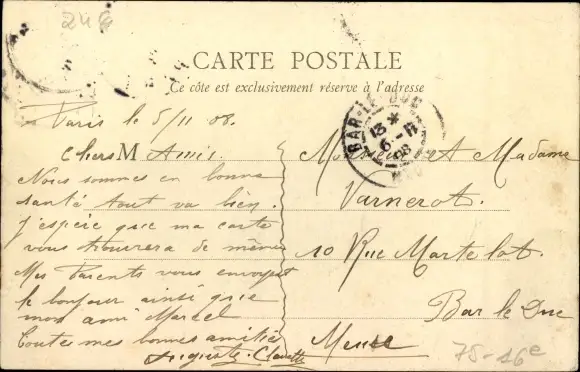 248
CARTE POSTALE
Ce côté est exclusivement réservé à l'adresse
BAR-LE-DUC
13 *
6 - 11
08
Paris le 5/11 08.
Chers M Amis.
Nous sommes en bonne
santé tout va bien.
J'espère que ma carte
vous trouvera de même
Mes Parents vous envoyent
le bonjour ainsi que
mon ami Marcel
Toutes mes bonnes amitiés
Auguste
Monsieur et Madame
Varnerot.
10 Rue Martelot.
Bar le Duc
Meuse
75-16e